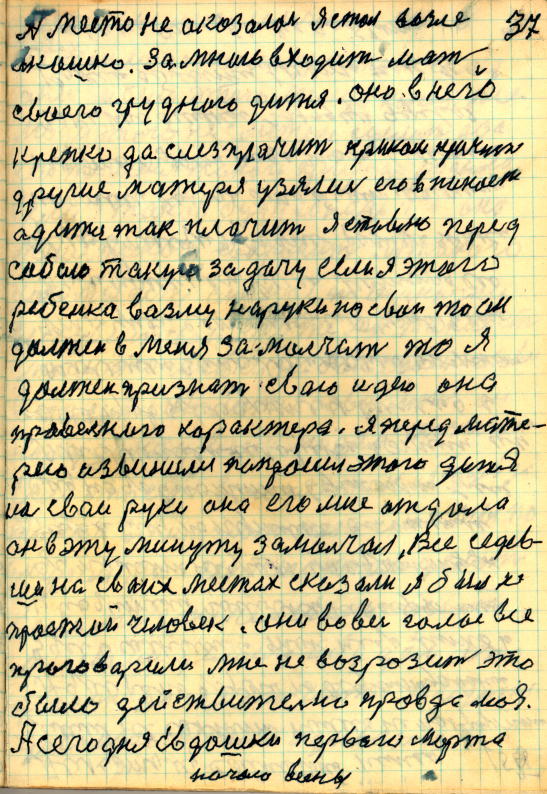 37
А место не оказалом я стал возле
окошко. За мною входит мат
своего грудного дитя. оно в нечо
крепко да слез плачит криком кричит
другие матеря узялись его в покоет
а дитя так плачит я ставлю перед
собою такую задачу если я этого
ребенка вазму на руки по свои то он
должен в меня замолчат то я
должен признат сваю идею она
праведного характера. я перед мате-
рею извинился попросил этого дитя
на сваи руки она его мне отдала
он в эту минуту замолчал, Все седев-
ши на своих местах сказали я был не
простой человек. они во вес голос все
проговарили мне не возрозит это
было действително правда моя.
А сегодня дошки первого марта
начало весны